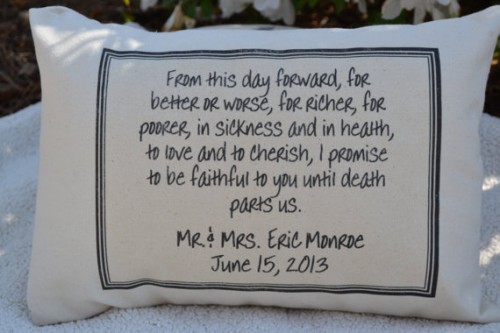 From this day forward, for
better or worse, for richer, for
poorer, in sickness and in health,
to love and to cherish, I promise
to be faithful to you until death
parts us.
Mr. & Mrs. Eric Monroe
June 15, 2013